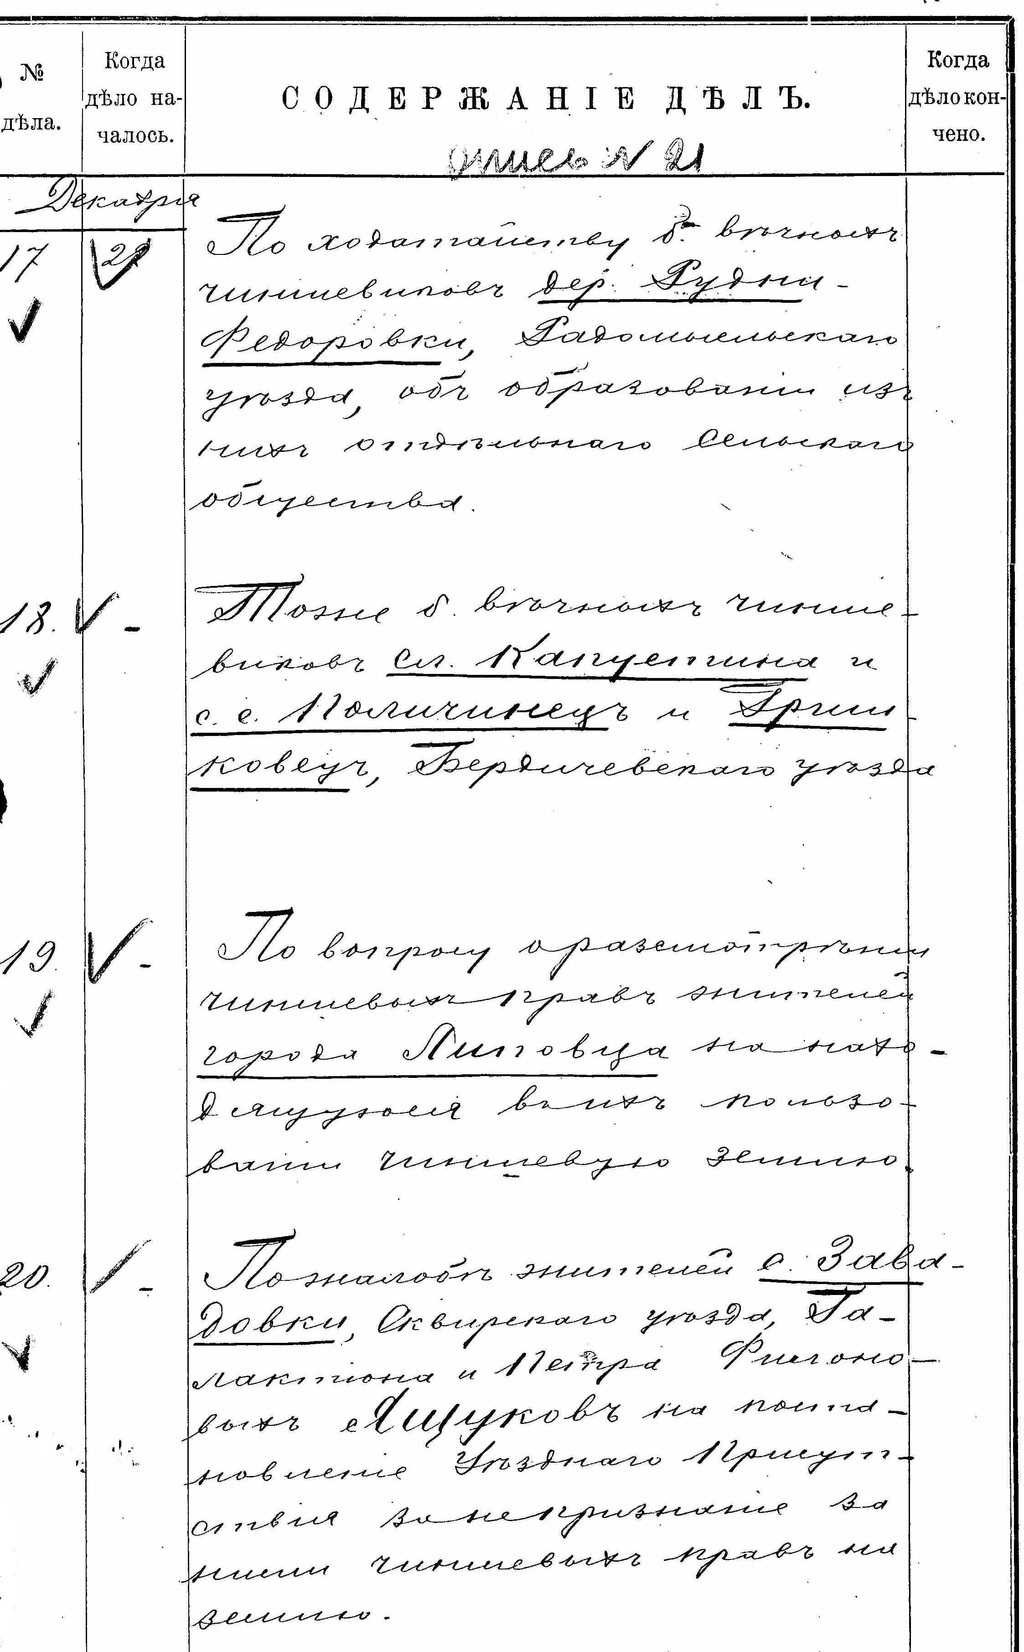 № дѣла.
Когда дѣло на-
чалось.
СОДЕРЖАНІЕ ДѢЛЪ.
Когда дѣло кон-
чено.
опись N 21
Декабря
17
По ходатайству б. вѣчныхъ
чиншевиковъ дер. Рудни-
Федоровки, Радомысльскаго
уѣзда, объ образованіи изъ
нихъ отдѣльнаго сельскаго
общества.
18. -
Тоже б. вѣчныхъ чинше-
виковъ сл. Капустина и
с. с. Поличинецъ и Гриш-
ковецъ, Бердичевскаго уѣзда
19. -
По вопросу о разсмотрѣніи
чиншевыхъ правъ жителей
города Липовца на нахо-
дящуюся въ ихъ пользо-
ваніи чиншевую землю.
20. -
По жалобѣ жителей с. Зава-
довки, Сквирскаго уѣзда, Га-
лактіона и Петра Филоно-
выхъ Ящуковъ на поста-
новленіе Уѣзднаго Присут-
ствія за непризнаніе за
ними чиншевыхъ правъ на
землю.